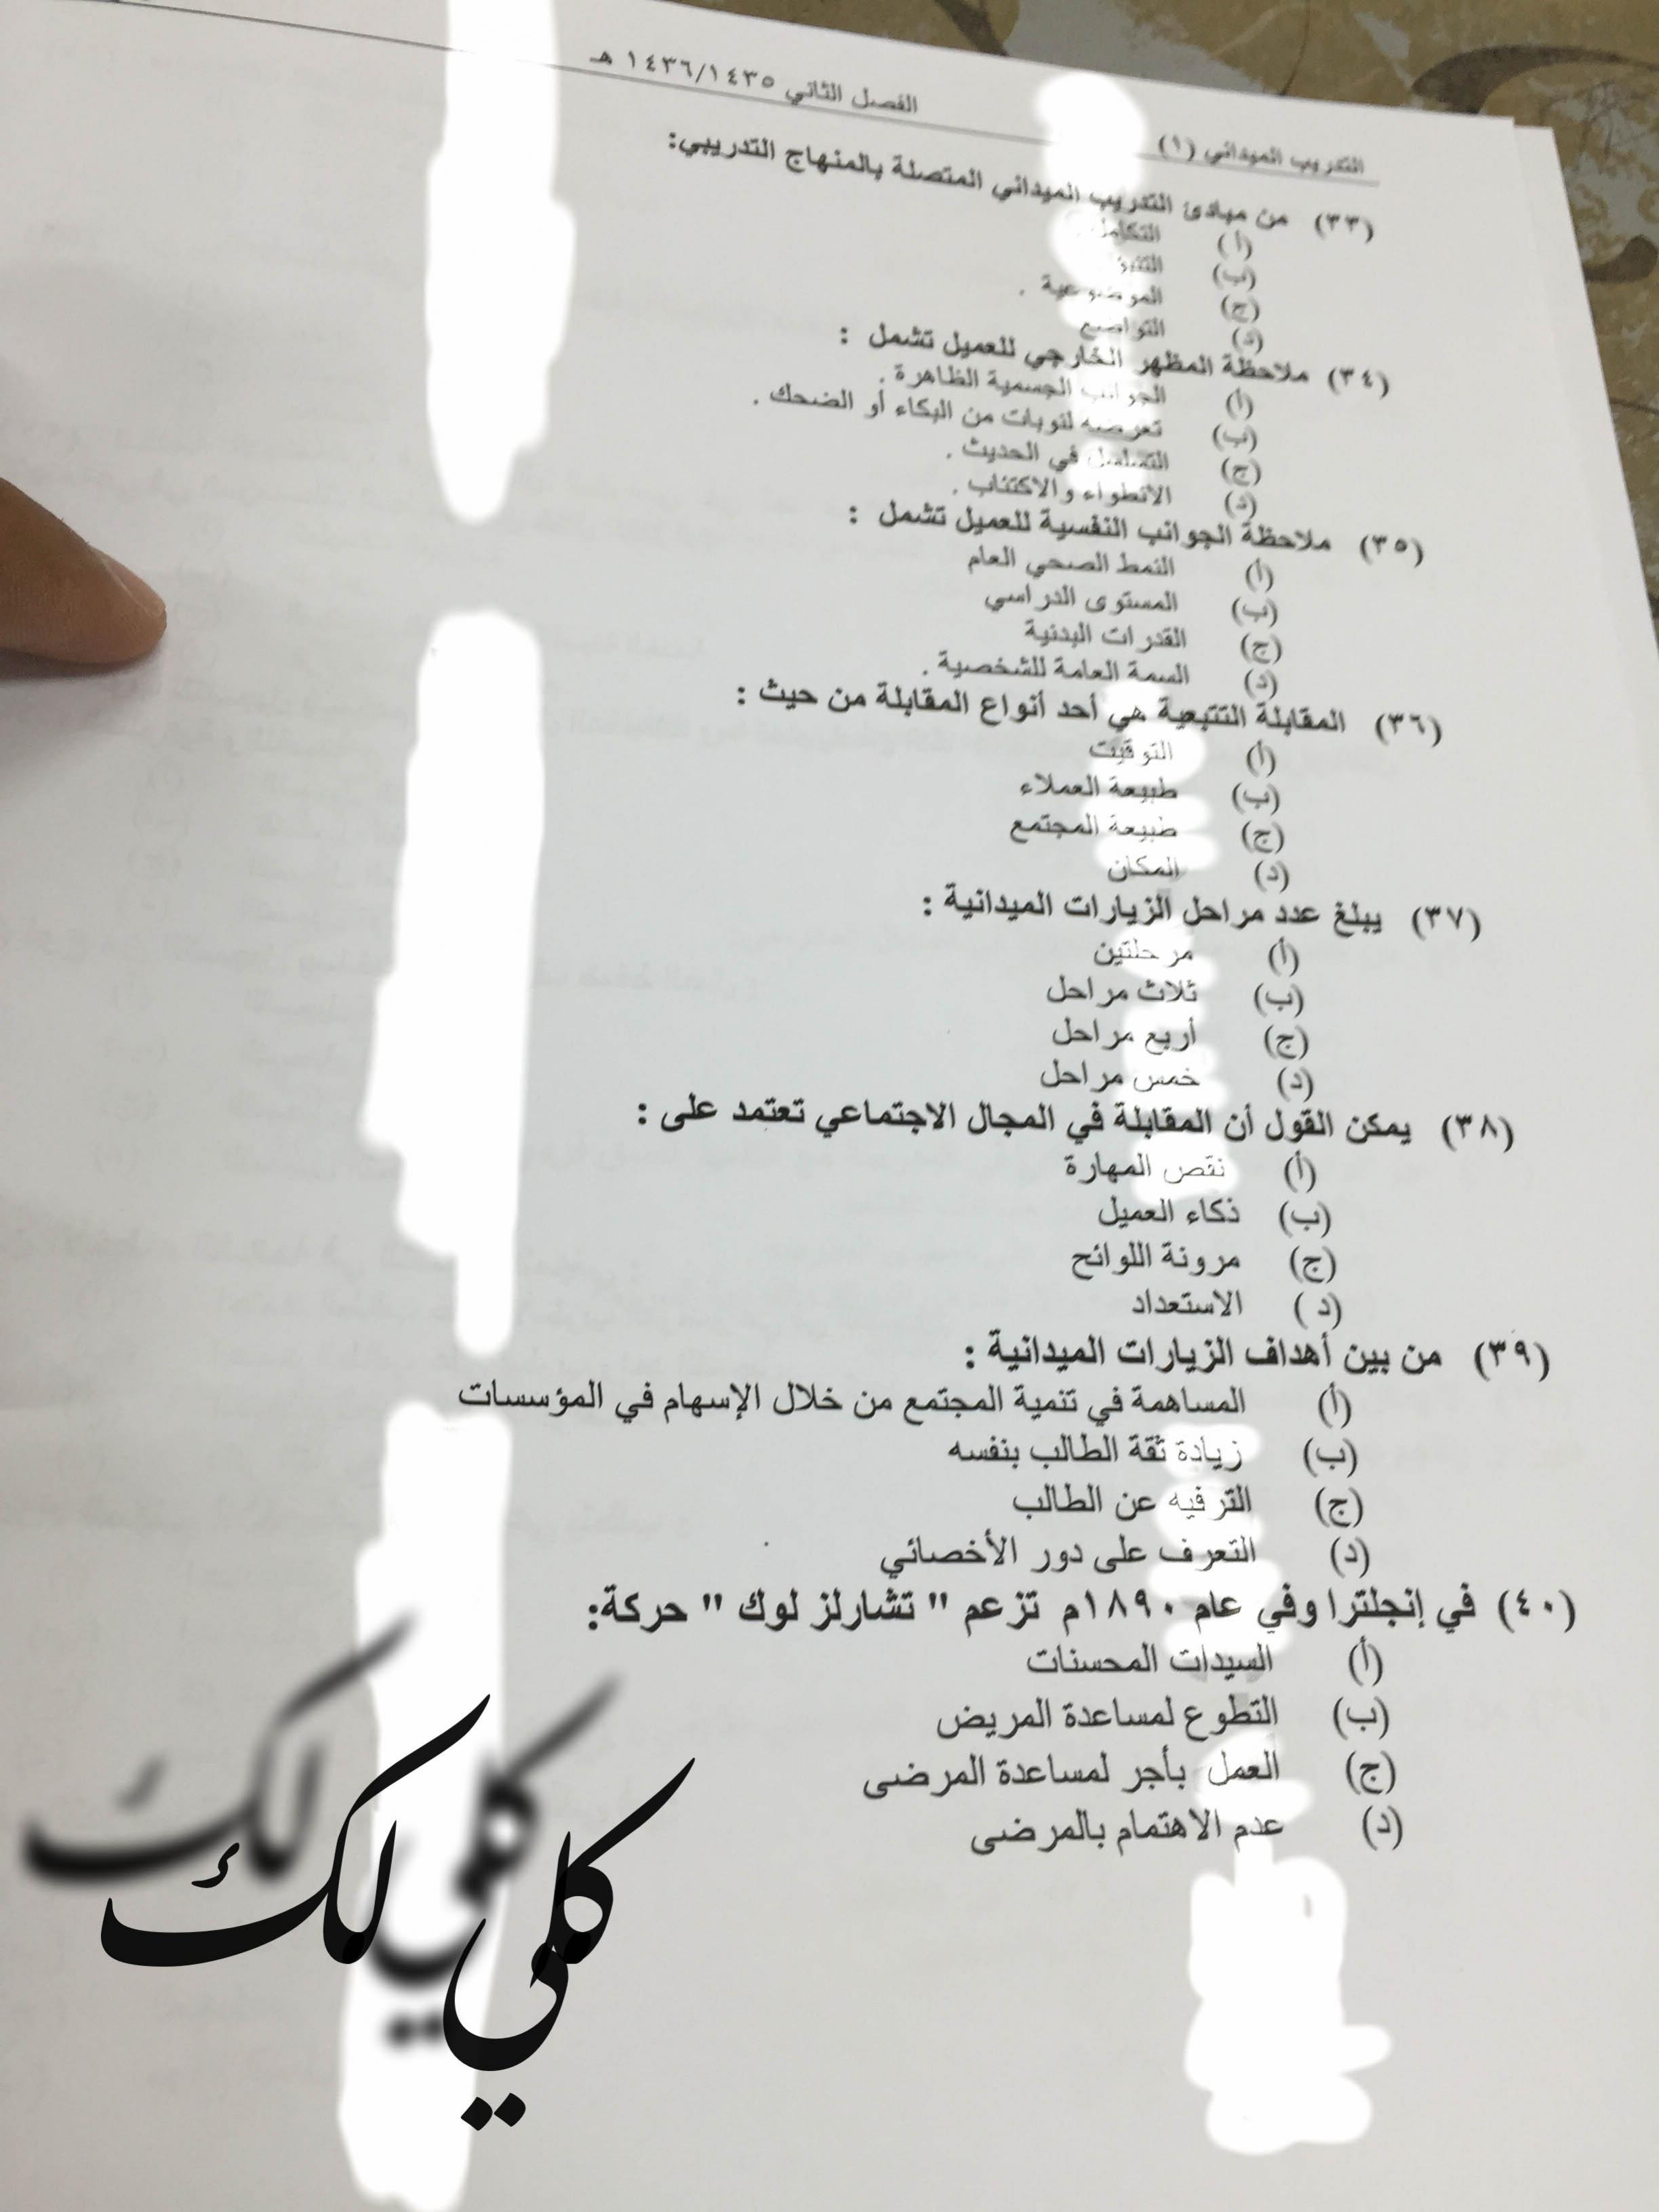 التدريب الميداني (١) الفصل الثاني ١٤٣٦/١٤٣٥ هـ
(٣٣) من مبادئ التدريب الميداني المتصلة بالمنهاج التدريبي:
(أ) التكامل .
(ب)
(ج) الموضوعية .
(د) التواضع
(٣٤) ملاحظة المظهر الخارجي للعميل تشمل :
(أ) الجوانب الجسمية الظاهرة .
(ب) تعرضه لنوبات من البكاء أو الضحك .
(ج) التسلسل في الحديث .
(د) الانطواء والاكتئاب .
(٣٥) ملاحظة الجوانب النفسية للعميل تشمل :
(أ) النمط الصحي العام
(ب) المستوى الدراسي
(ج) القدرات البدنية
(د) السمة العامة للشخصية .
(٣٦) المقابلة التتبعية هي أحد أنواع المقابلة من حيث :
(أ) التوقيت
(ب) طبيعة العملاء
(ج) طبيعة المجتمع
(د) المكان
(٣٧) يبلغ عدد مراحل الزيارات الميدانية :
(أ) مرحلتين
(ب) ثلاث مراحل
(ج) أربع مراحل
(د) خمس مراحل
(٣٨) يمكن القول أن المقابلة في المجال الاجتماعي تعتمد على :
(أ) نقص المهارة
(ب) ذكاء العميل
(ج) مرونة اللوائح
(د ) الاستعداد
(٣٩) من بين أهداف الزيارات الميدانية :
(أ) المساهمة في تنمية المجتمع من خلال الإسهام في المؤسسات
(ب) زيادة ثقة الطالب بنفسه
(ج) الترفيه عن الطالب
(د) التعرف على دور الأخصائي
(٤٠) في إنجلترا وفي عام ١٨٩٠م تزعم " تشارلز لوك " حركة:
(أ) السيدات المحسنات
(ب) التطوع لمساعدة المريض
(ج) العمل بأجر لمساعدة المرضى
(د) عدم الاهتمام بالمرضى
كلي لك